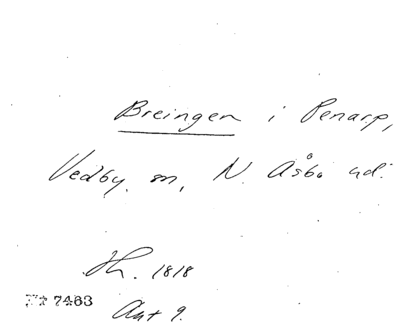 Breingen i Penarp,
Vedby sn, N. Åsbo hd.
Jh. 1818
Nr 7463
Akt 9.